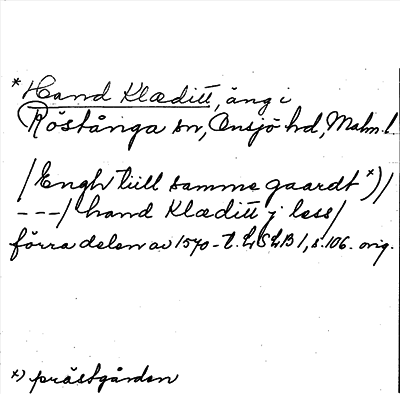 * Hand Klæditt, äng i
Röstånga sn, Onsjö hd, Malm. l.
/Engh tiill samme gaardt *)/
---/ hand Klæditt j less/
förra delen av 1570-t. LSLB 1, s. 106. orig.
*) prästgården